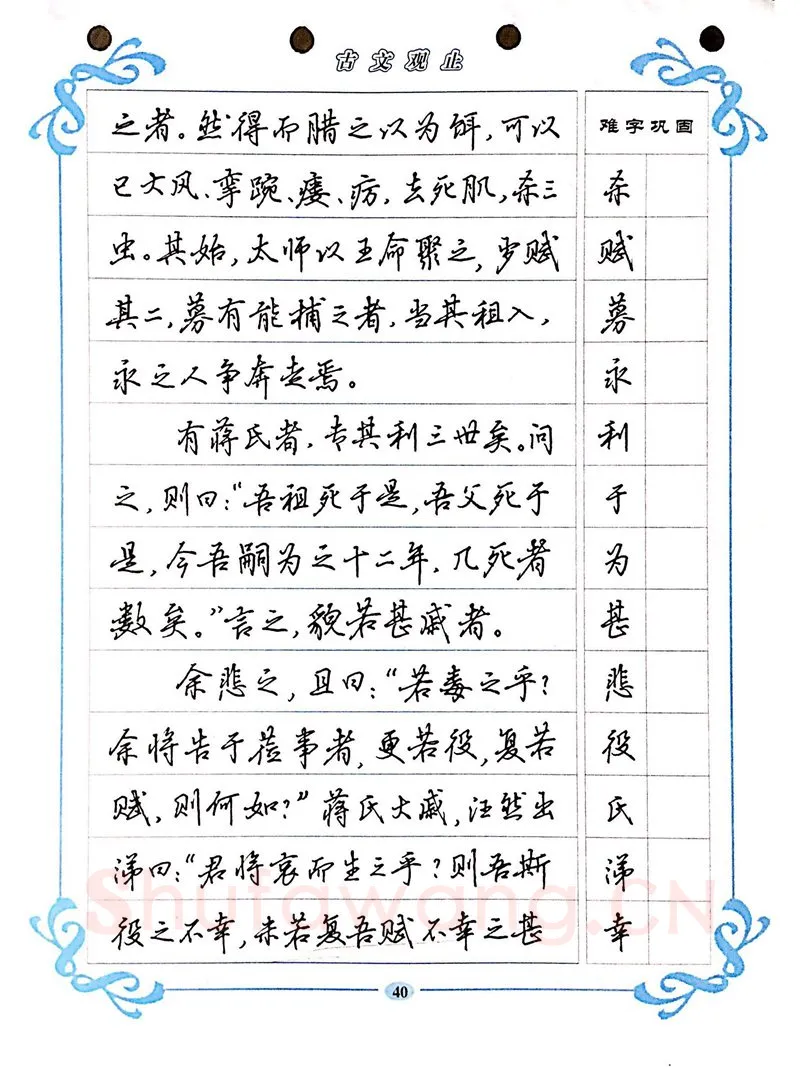 古文观止
之者。然得而腊之以为饵,可以
已大风、挛踠、瘘、疠,去死肌,杀三
虫。其始,太师以王命聚之,岁赋
其二,募有能捕之者,当其租入,
永之人争奔走焉。
有蒋氏者,专其利三世矣。问
之,则曰:“吾祖死于是,吾父死于
是,今吾嗣为之十二年,几死者
数矣。”言之,貌若甚戚者。
余悲之,且曰:“若毒之乎?
余将告于莅事者,更若役,复若
赋,则何如?”蒋氏大戚,汪然出
涕曰:“君将哀而生之乎?则吾斯
役之不幸,未若复吾赋不幸之甚
难字巩固
杀
赋
募
永
利
于
为
甚
悲
役
氏
涕
幸
Shufawang.CN
40